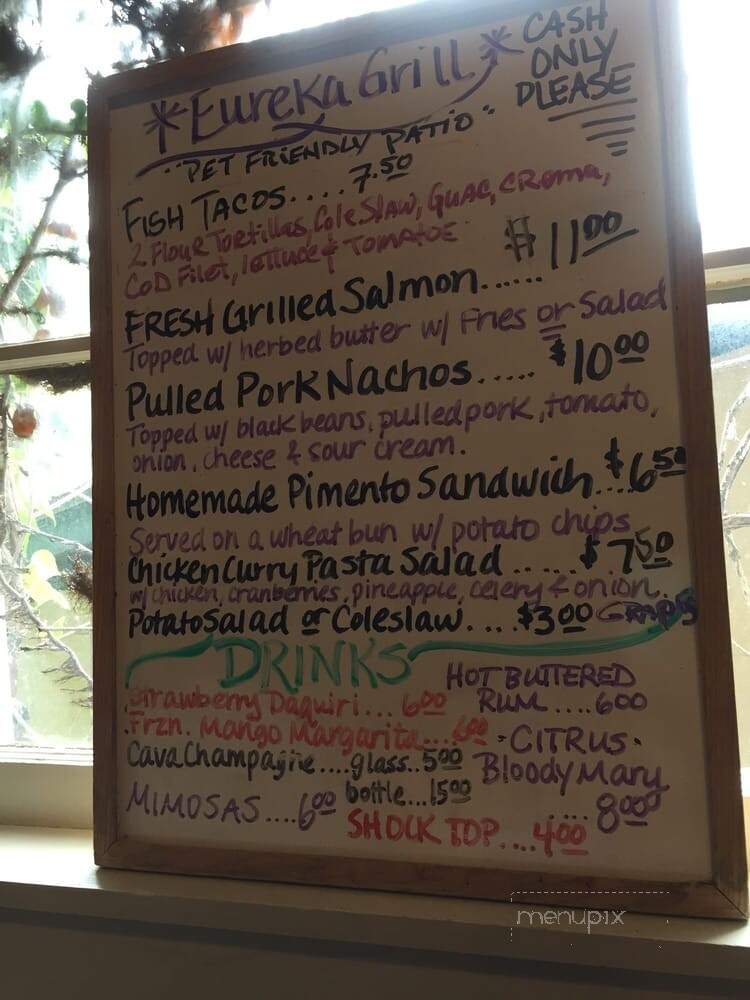 *Eureka Grill*
CASH
ONLY
PLEASE
"PET FRIENDLY PATIO"
FISH TACOS....7.50
2 Flour Tortillas, Cole Slaw, Guac, CROMA,
COD Filet, lettuce & TOMATOE
FRESH Grilled Salmon...... $11.00
Topped w/ herbed butter w/ Fries or Salad
Pulled Pork Nachos..... $10.00
Topped w/ black beans, pulled pork, tomato,
onion, cheese & sour cream.
Homemade Pimento Sandwich....$6.50
Served on a wheat bun w/ potato chips
Chicken Curry Pasta Salad ..... $7.50
w/ chicken, cranberries, pineapple, celery & onion.
GRAPES
Potato Salad or Coleslaw.... $3.00
DRINKS
Strawberry Daquiri... 6.00
Frzn. Mango Margarita...6.00
Cava Champagne....glass..5.00
bottle...15.00
MIMOSAS....6.00
HOT BUTTERED
RUM ....6.00
·CITRUS·
Bloody Mary
.... 8.00
SHOCK TOP....4.00
menupix